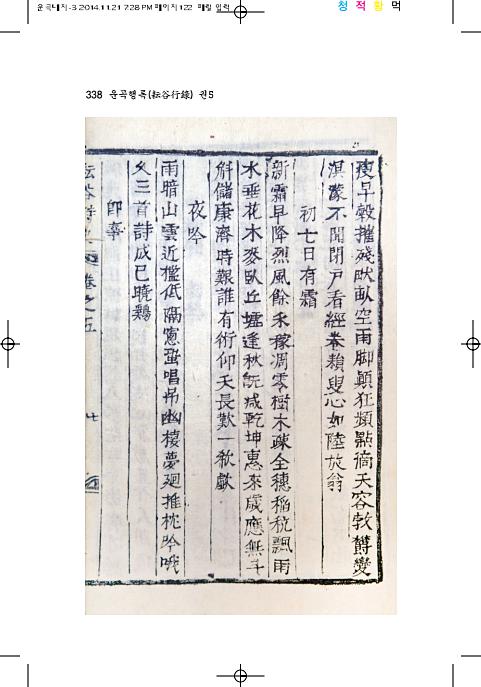 운곡내지-3 2014.11.21 7:28 PM 페이지122 매킬 입력
청 적 황 먹
338 운곡행록(耘谷行錄) 권5
瘦早穀摧殘畎畝空雨脚顚狂頻點滴天容變
溟濛不聞閉戶看經卷賴叟心如陸放翁
初七日有霜
新霜早降烈風餘禾稼凋零樹木疎全穗稻秔飄雨
水垂花木麥臥丘墟逢秋旣减乾坤惠來歲應無斗
斛儲康濟時艱誰有術仰天長歎一欷歔
夜吟
雨暗山雲近檻低隔窓蛩唱吊幽棲夢廻推枕吟哦
久三首詩成已曉鷄
卽事
耘谷詩 卷之五